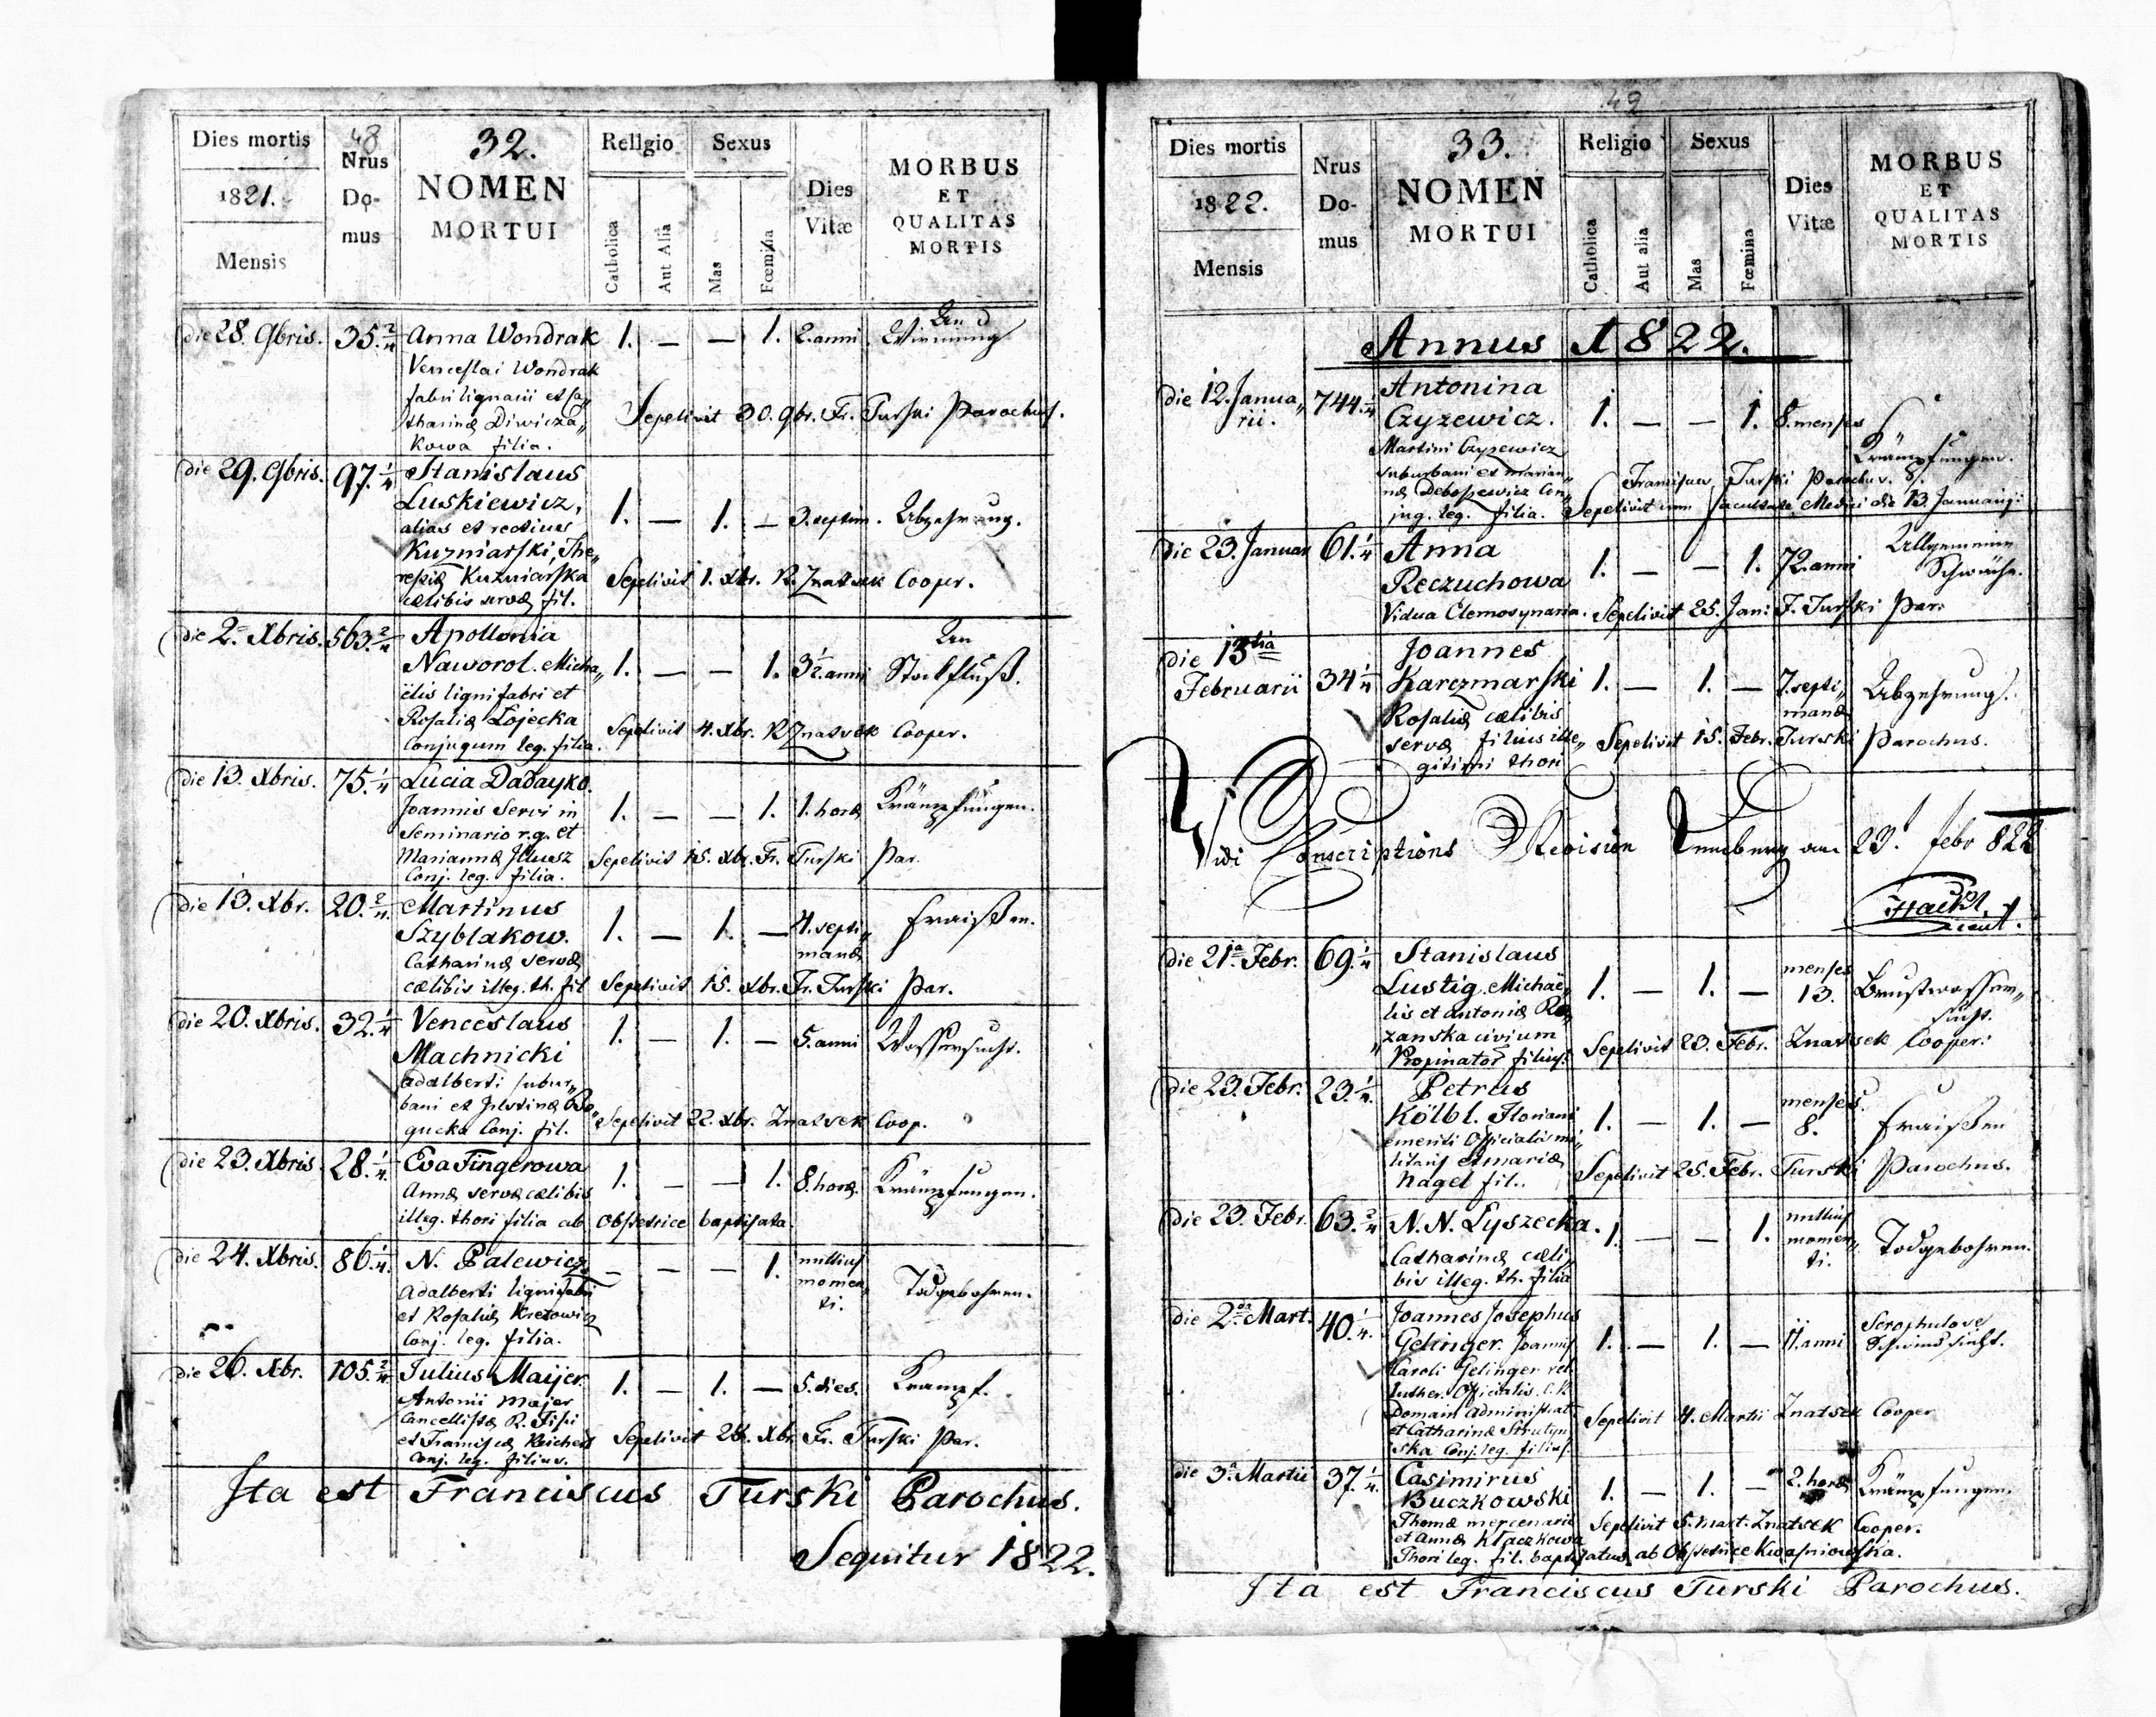 48
32.
Dies mortis
1821.
Mensis
Nrus
Do-
mus
NOMEN
MORTUI
Religio
Catholica
Aut Alia
Sexus
Mas
Fœmina
Dies
Vitæ
MORBUS
ET
QUALITAS
MORTIS
die 28. 9bris. 35. 2/4 Anna Wondrak 1. — — 1. 2. anni
Venceslai Wondrak
fabri lignarii et Ca„
tharinæ Diwicza„
kowa filia.
Sepelivit 30. 9br. Fr. Turski Parochus.
die 29. 9bris. 97. 1/4 Stanislaus
Luskiewicz,
alias et rectius
Kuzniarski, The„
resiæ Kuzniarska
cælibis servæ fil.
1. — 1. — 3. septim. Abzehrung.
Sepelivit 1. Xbr. R. Znatsek Cooper.
die 2. Xbris. 563. 2/4 Apollonia
Naworol. Micha„
ëlis lignifabri et
Rosaliæ Łojecka
Conjugum leg. filia.
1. — — 1. 3 1/2 anni An
Stockfluß.
Sepelivit 4. Xbr. R Znatsek Cooper.
die 13. Xbris. 75. 1/4 Lucia Dadayko.
Joannis Servi in
Seminario r. g. et
Mariannæ
Conj. leg. filia.
1. — — 1. 1. hora Krämpfungen.
Sepelivit 15. Xbr. Fr. Turski Par.
die 13. Xbr. 20. 2/4 Martinus
Szyblakow.
Catharinæ servæ
cælibis illeg. th. fil
1. — 1. — 4. septi„
manæ
Fraißen.
Sepelivit 15. Xbr. Fr. Turski Par.
die 20. Xbris. 32. 1/4 Venceslaus
Machnicki
Adalberti subur„
bani et Justinæ Bo„
gucka Conj. fil.
1. — 1. — 5. anni Wassersucht.
Sepelivit 22. Xbr. Znatsek Coop.
die 23. Xbris 28. 1/4 Eva Fingerowa
Annæ servæ cælibis
illeg. thori filia ab Obstetrice baptisata
1. — — 1. 8. horæ. Krämpfungen.
die 24. Xbris. 86. 1/4 N. Palewicz
Adalberti lignifabri
et Rosaliæ Kretowicz
Conj. leg. filia.
— — — 1. nullius
momen„
ti.
Todgebohren.
die 26. Xbr. 105. 2/4 Julius Maijer
Antonii Majer
Cancellistæ R. Fisci
et Franciscæ Reichert
Conj. leg. filius.
1. — 1. — 5. dies. Krampf.
Sepelivit 28. Xbr. Fr. Turski Par.
Ita est Franciscus Turski Parochus.
Sequitur 1822.
49
33.
Dies mortis
1822.
Mensis
Nrus
Do-
mus
NOMEN
MORTUI
Religio
Catholica
Aut alia
Sexus
Mas
Fœmina
Dies
Vitæ
MORBUS
ET
QUALITAS
MORTIS
Annus 1822.
die 12. Janua„
rii.
744. 1/4 Antonina
Czyzewicz.
Martini Czyzewicz
suburbani et Marian„
næ Con„
jug. leg. filia.
1. — — 1. 8. menses
Krämpfungen.
Franciscus Turski Parochus
Sepelivit cum facultate Medici die 13. Januarij.
die 23. Januar 61. 1/4 Anna
Reczuchowa
Vidua Elemosynaria.
1. — — 1. 72. anni Allgemeine
Schwäche.
Sepelivit 25. Jan: F. Turski Par:
die 13tia
Februarii
34 1/4 Joannes
Karczmarski
Rosaliæ cælibis
servæ filius ille„
gitimi thori
1. — 1. — 7. septi„
manæ
Abzehrung.
Sepelivit 15. Febr. Turski Parochus.
Vidi Conscriptions Revision Lemberg am 23t Febr 822
die 21a Febr. 69. 1/4 Stanislaus
Lustig. Michaë„
lis et Antoniæ Ro„
zanska civium
Propinator filius.
1. — 1. — menses
13.
Brustwasser„
sucht.
Sepelivit 23. Febr. Znatsek Cooper:
die 23. Febr. 23. 1/4 Petrus
Kölbl. Floriani
emeriti Officialis mi„
litaris et Mariæ
Nagel fil.
1. — 1. — menses.
8.
Fraißen
Sepelivit 25. Febr. Turski Parochus.
die 23. Febr. 63. 2/4 N. N. Lyszecka.
Catharinæ cæli„
bis illeg. th. filia
1. — — 1. nullius
momen„
ti.
Todgebohren.
die 2da Mart. 40. 1/4 Joannes Josephus
Gelinger. Joannis
Caroli Gelinger rel.
Luther. Officialis. C. R.
Domain Administrat.
et Catharinæ Strutyn„
ska Conj. leg. filius.
1. — 1. — 11. anni Scrophulose
Schwindsucht.
Sepelivit 4. Martii Znatsek Cooper
die 3a Martii 37. 1/4 Casimirus
Buczkowski
Thomæ mercenarii
et Annæ Kłaczkowa
Thori leg. fil. baptisatus ab Obstetrice Kwasniowska.
1. — 1. — 2. horæ Krämpfungen.
Sepelivit 5. Mart. Znatsek Cooper.
Ita est Franciscus Turski Parochus.